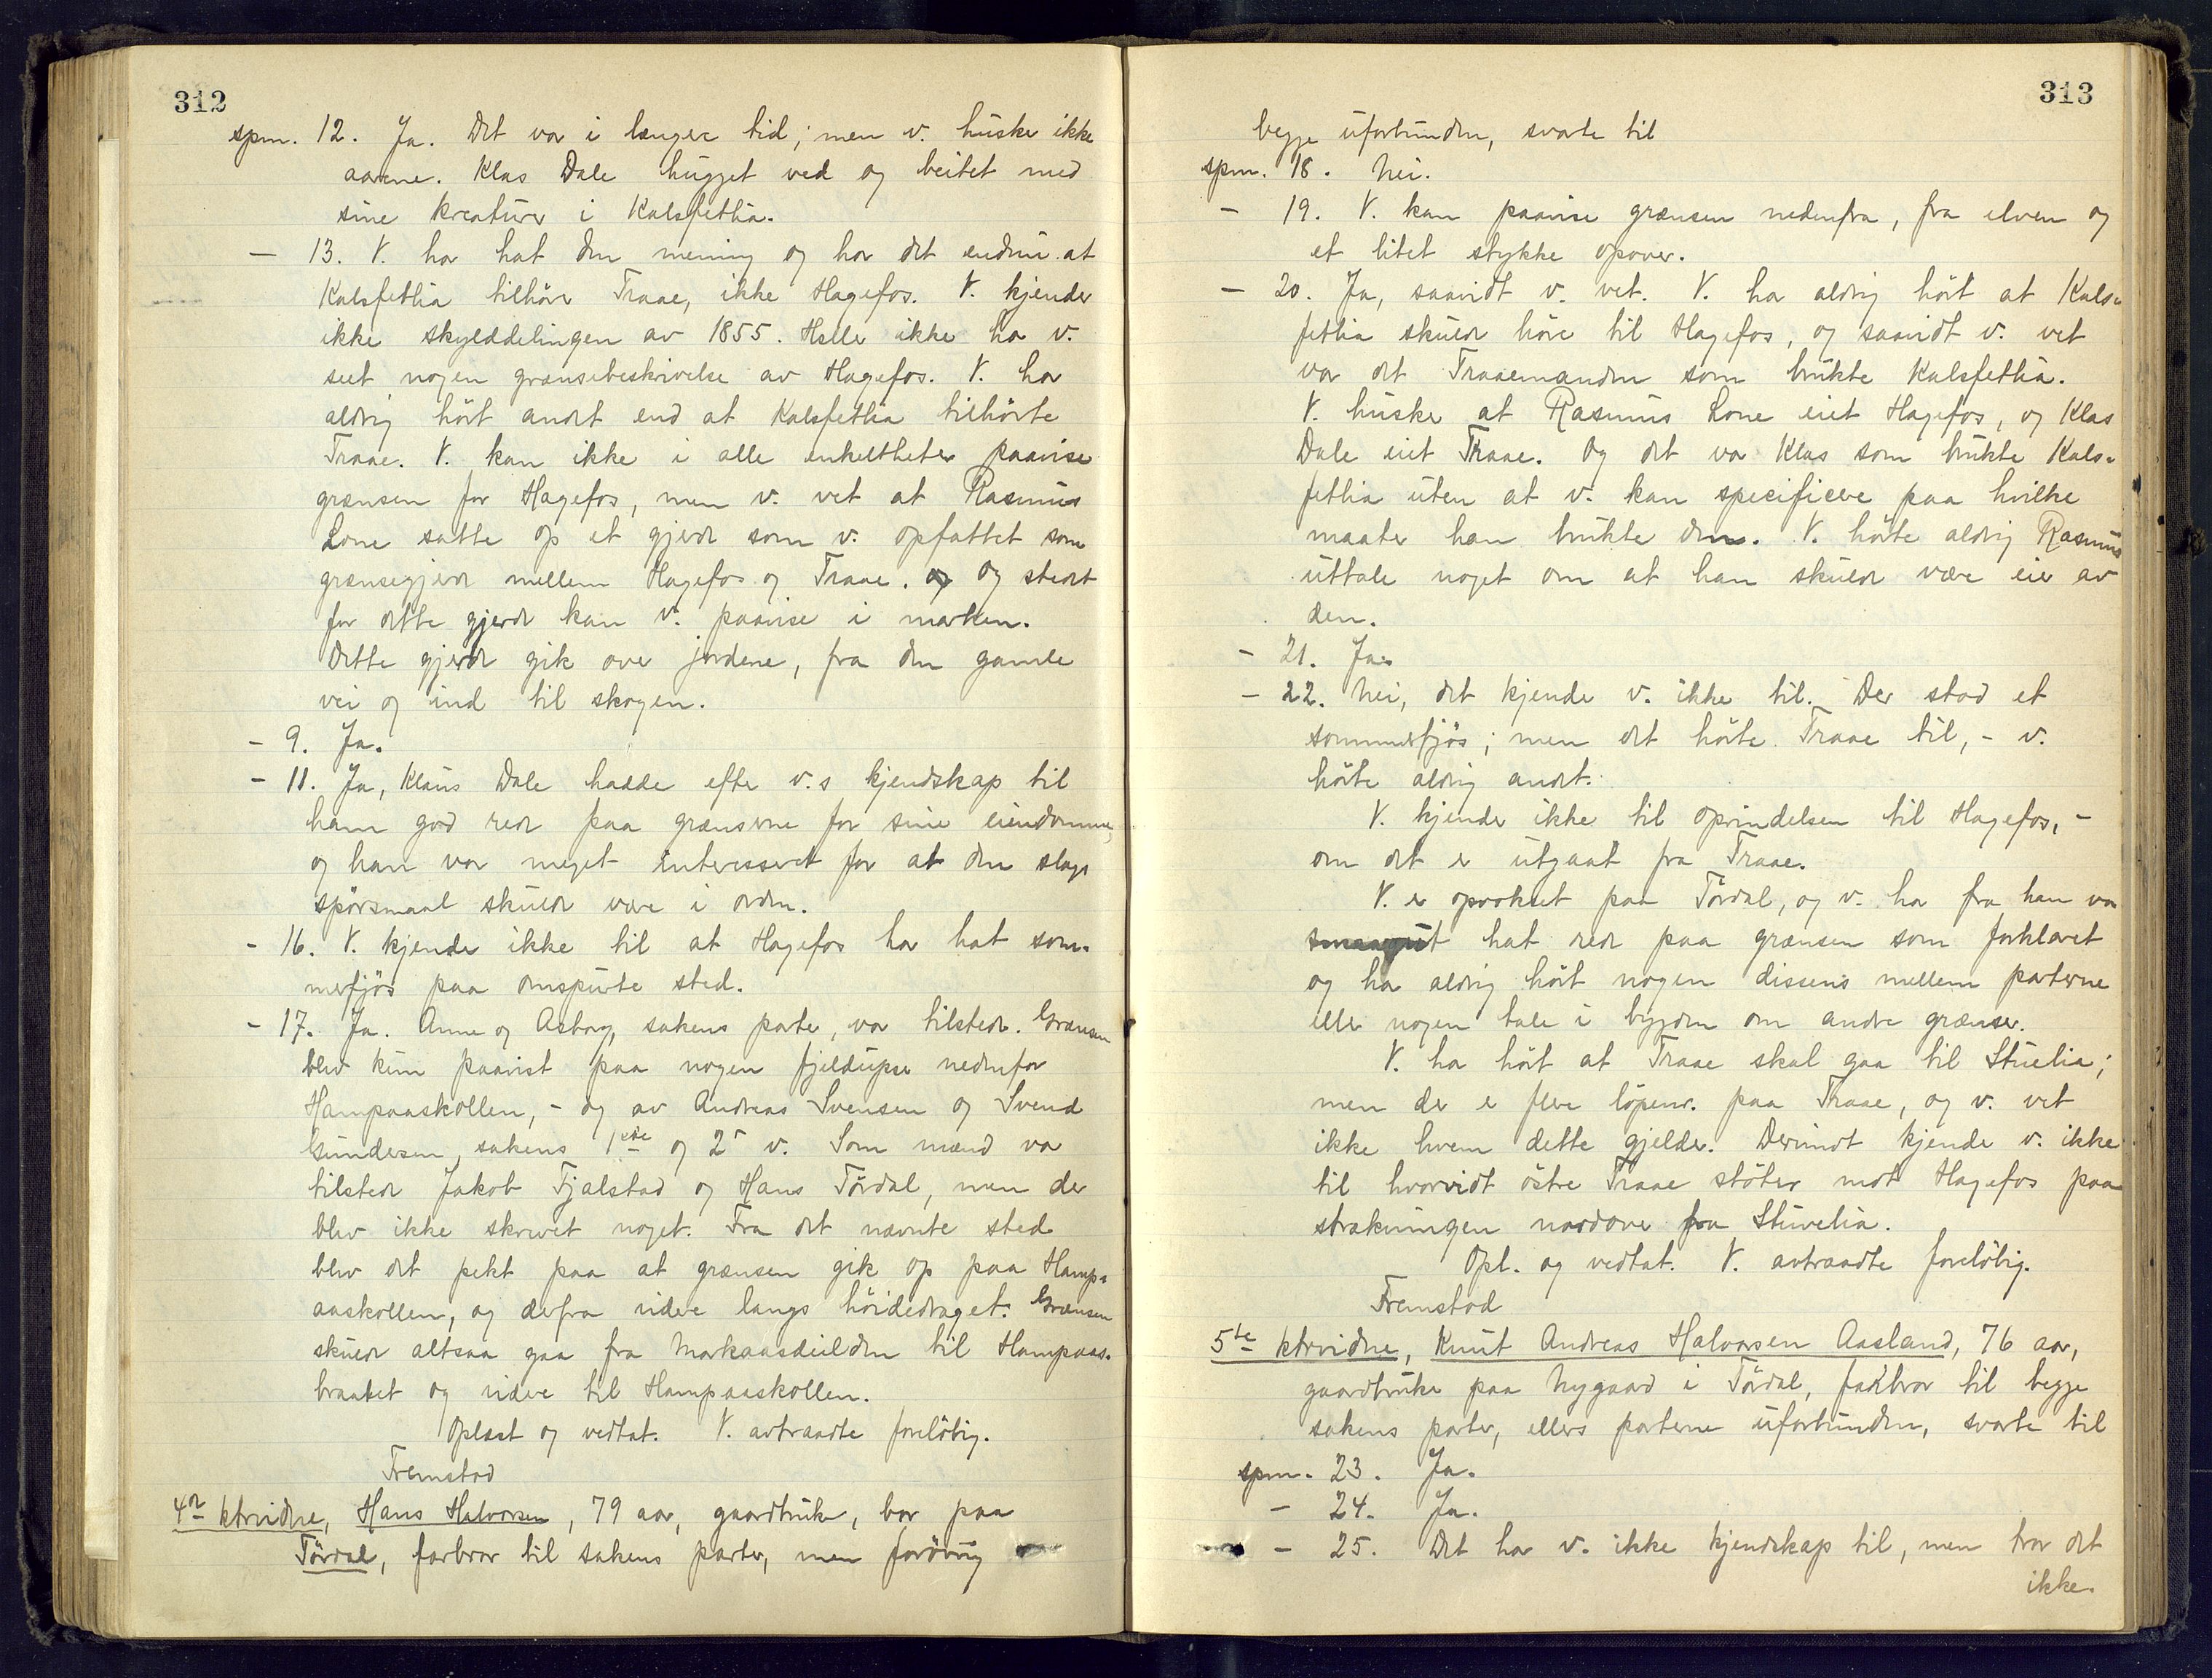 312
spm. 12. Ja. Det var i længere tid; men v. husker ikke
aarene. Klas Dale hugget ved og beitet med
sine kreaturer i Kalsfetlia.
— 13. V. har hat den mening og har det endnu at
Kalsfetlia tilhörer Traae, ikke Hagefos. V. kjender
ikke skylddelingen av 1855. Heller ikke har v.
seet nogen grænsebeskrivelse av Hagefos. V. har
aldrig hört andet end at Kalsfetlia tilhörte
Traae. V. kan ikke i alle enkeltheter paavise
grænsen for Hagefos, men v. vet at Rasmus
Lone satte op et gjerde som v. opfattet som
grænsegjerde mellem Hagefos og Traae. og Og stedet
for dette gjerde kan v. paavise i marken.
Dette gjerde gik over jordene, fra den gamle
vei og ind til skogen.
- 9. Ja.
- 11. Ja, Klaus Dale hadde efter v.s kjendskap til
ham god rede paa grænserne for sine eiendomme,
og han var meget interesseret for at den slags
spörsmaal skulde være i orden.
- 16. V. kjender ikke til at Hagefos har hat som-
merfjös paa omspurte sted.
- 17. Ja. Anne og Asborg, sakens parter, var tilstede. Grænsen
blev kun paavist paa nogen fjeldupser nedenfor
Hampaaskollen, - og av Andreas Svensen og Svend
Gundersen, sakens 1ste og 2det v. Som mænd var
tilstede Jakob Fjalstad og Hans Tördal, men der
blev ikke skrevet noget. Fra det nævnte sted
blev det pekt paa at grænsen gik op paa Hamp-
aaskollen, og derfra videre langs höidedraget. Grænsen
skulde altsaa gaa fra Markaasdeilden til Hampaas-
braatet og videre til Hampaaskollen.
Oplæst og vedtat. V. avtraadte forelöbig.
Fremstod
4de ktrvidne, Hans Halvorsen, 79 aar, gaardbruker, bor paa
Tördal, farbror til sakens parter, men forövrig
313
begge uforbunden, svarte til
spm. 18. Nei.
- 19. V. kan paavise grænsen nedenfra, fra elven og
et litet stykke opover.
- 20. Ja, saavidt v. vet. V. har aldrig hört at Kals-
fetlia skulde höre til Hagefos, og saavidt v. vet
var det Traaemanden som brukte Kalsfetlia.
V. husker at Rasmus Lone eiet Hagefos, og Klas
Dale eiet Traae. Og det var Klas som brukte Kals-
fetlia uten at v. kan specificere paa hvilke
maater han brukte den. V. hörte aldrig Rasmus
uttale noget om at han skulde være eier av
den.
- 21. Ja.
- 22. Nei, det kjender v. ikke til. Der stod et
sommerfjös; men det hörte Traae til, - v.
hörte aldrig andet.
V. kjender ikke til oprindelsen til Hagefos, -
om det er utgaat fra Traae.
V. er opvokset paa Tördal, og v. har fra han var
smaagut hat rede paa grænsen som forklaret
og har aldrig hört nogen dissens mellem parterne
eller nogen tale i bygden om andre grænser.
V. har hört at Traae skal gaa til Stuelia;
men der er flere löpenr. paa Traae, og v. vet
ikke hvem dette gjelder. Derimot kjender v. ikke
til hvorvidt östre Traae stöter mot Hagefos paa
strækningen nordover fra Stuvelia.
Opl. og vedtat. V. avtraadte forelöbig.
Fremstod
5te ktrvidne, Knut Andreas Halvorsen Aasland, 76 aar,
gaardbruker paa Nygaard i Tördal, farbror til begge
sakens parter, ellers parterne uforbunden, svarte til
spm. 23. Ja.
- 24. Ja.
- 25. Det har v. ikke kjendskap til, men tror det
ikke.